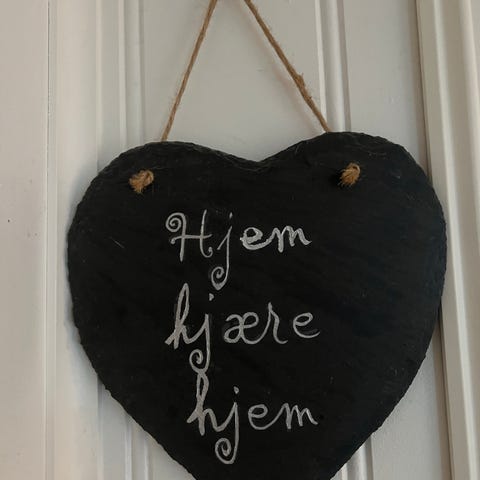 Hjem
hjære
hjem